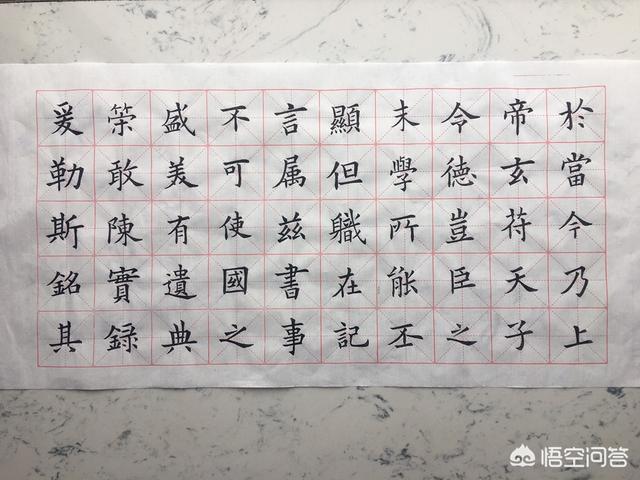 於當今乃上
帝玄苻天子
令德豈臣之
末學所能丕
顯但職在記
言属兹書事
不可使國之
盛美有遺典
策敢陳實録
爰勒斯銘其
悟空问答